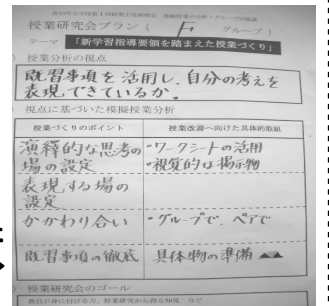 授業研究会プラン ( F グループ)
テーマ 「新学習指導要領を踏まえた授業づくり」
) 授業分析の視点
既習事項を活用し、自分の考えを
表現できているか。
) 視点に基づいた模擬授業分析
授業づくりのポイント 授業改善へ向けた具体的取組
演繹的な思考の場の設定 ・ワークシートの活用
・視覚的な掲示物
表現する場の
設定
かかわり合い ・グループで、ペアで
既習事項の徹底 具体物の準備
) 授業研究会のゴール